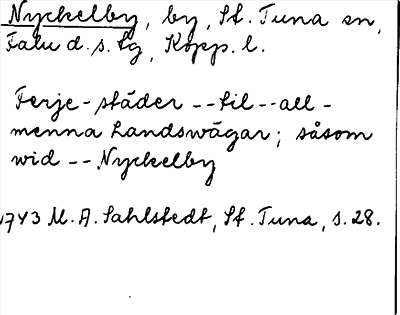 Nyckelby, by, St. Tuna sn,
Falu d. s. lg, Kopp. l.
Ferje-städer -- til -- all-
menna Landswägar; såsom
wid -- Nyckelby
1743 M. A. Sahlstedt, St. Tuna, s. 28.